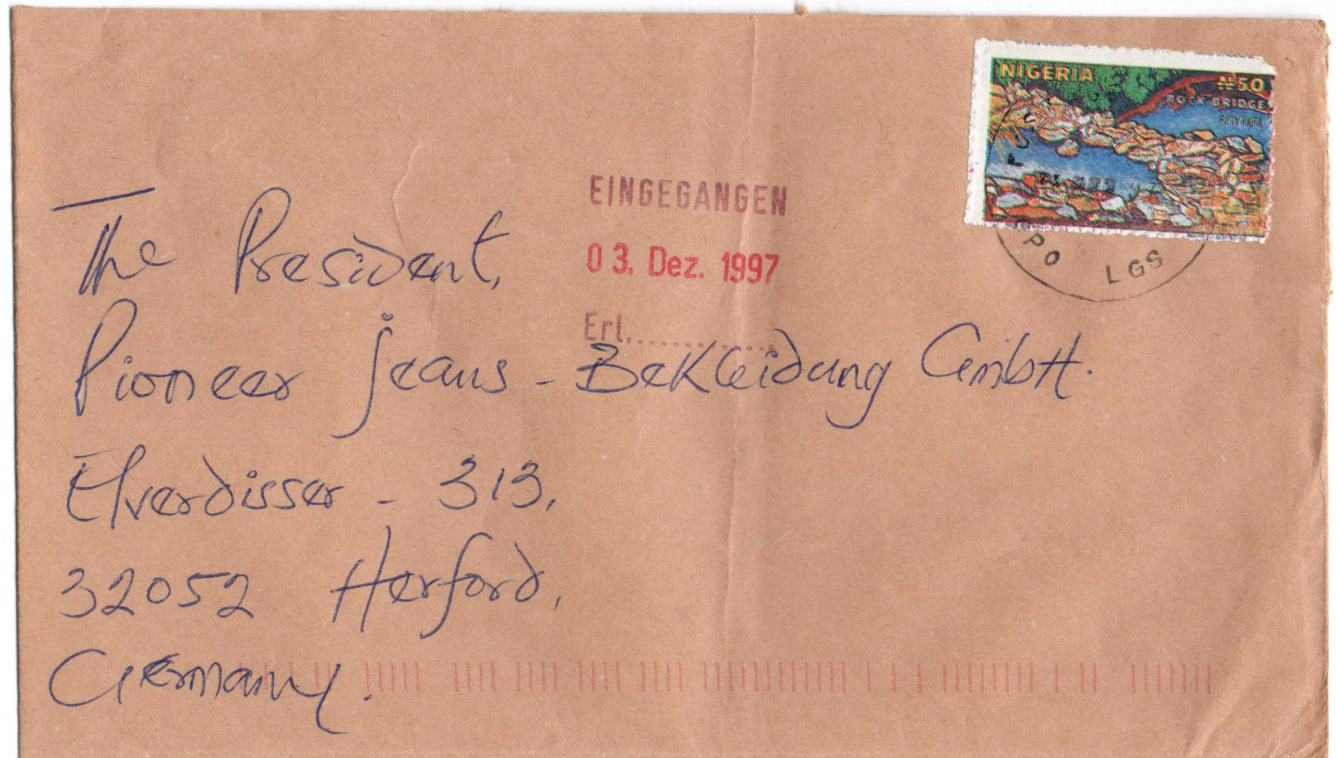 NIGERIA
₦50
ROCK BRIDGE
EINGEGANGEN
03. Dez. 1997
Erl..............
PO LGS
The President,
Pioneer Jeans - Bekleidung GmbH.
Elverdisser - 313,
32052 Herford,
Germany.